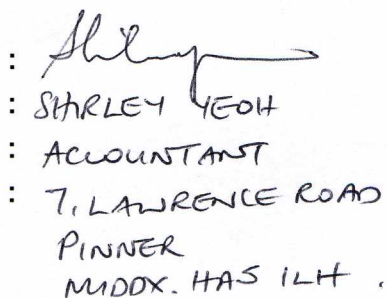 :
: SHIRLEY YEOH
: ACCOUNTANT
: 7, LAWRENCE ROAD
PINNER
MIDDX. HA5 1LH.